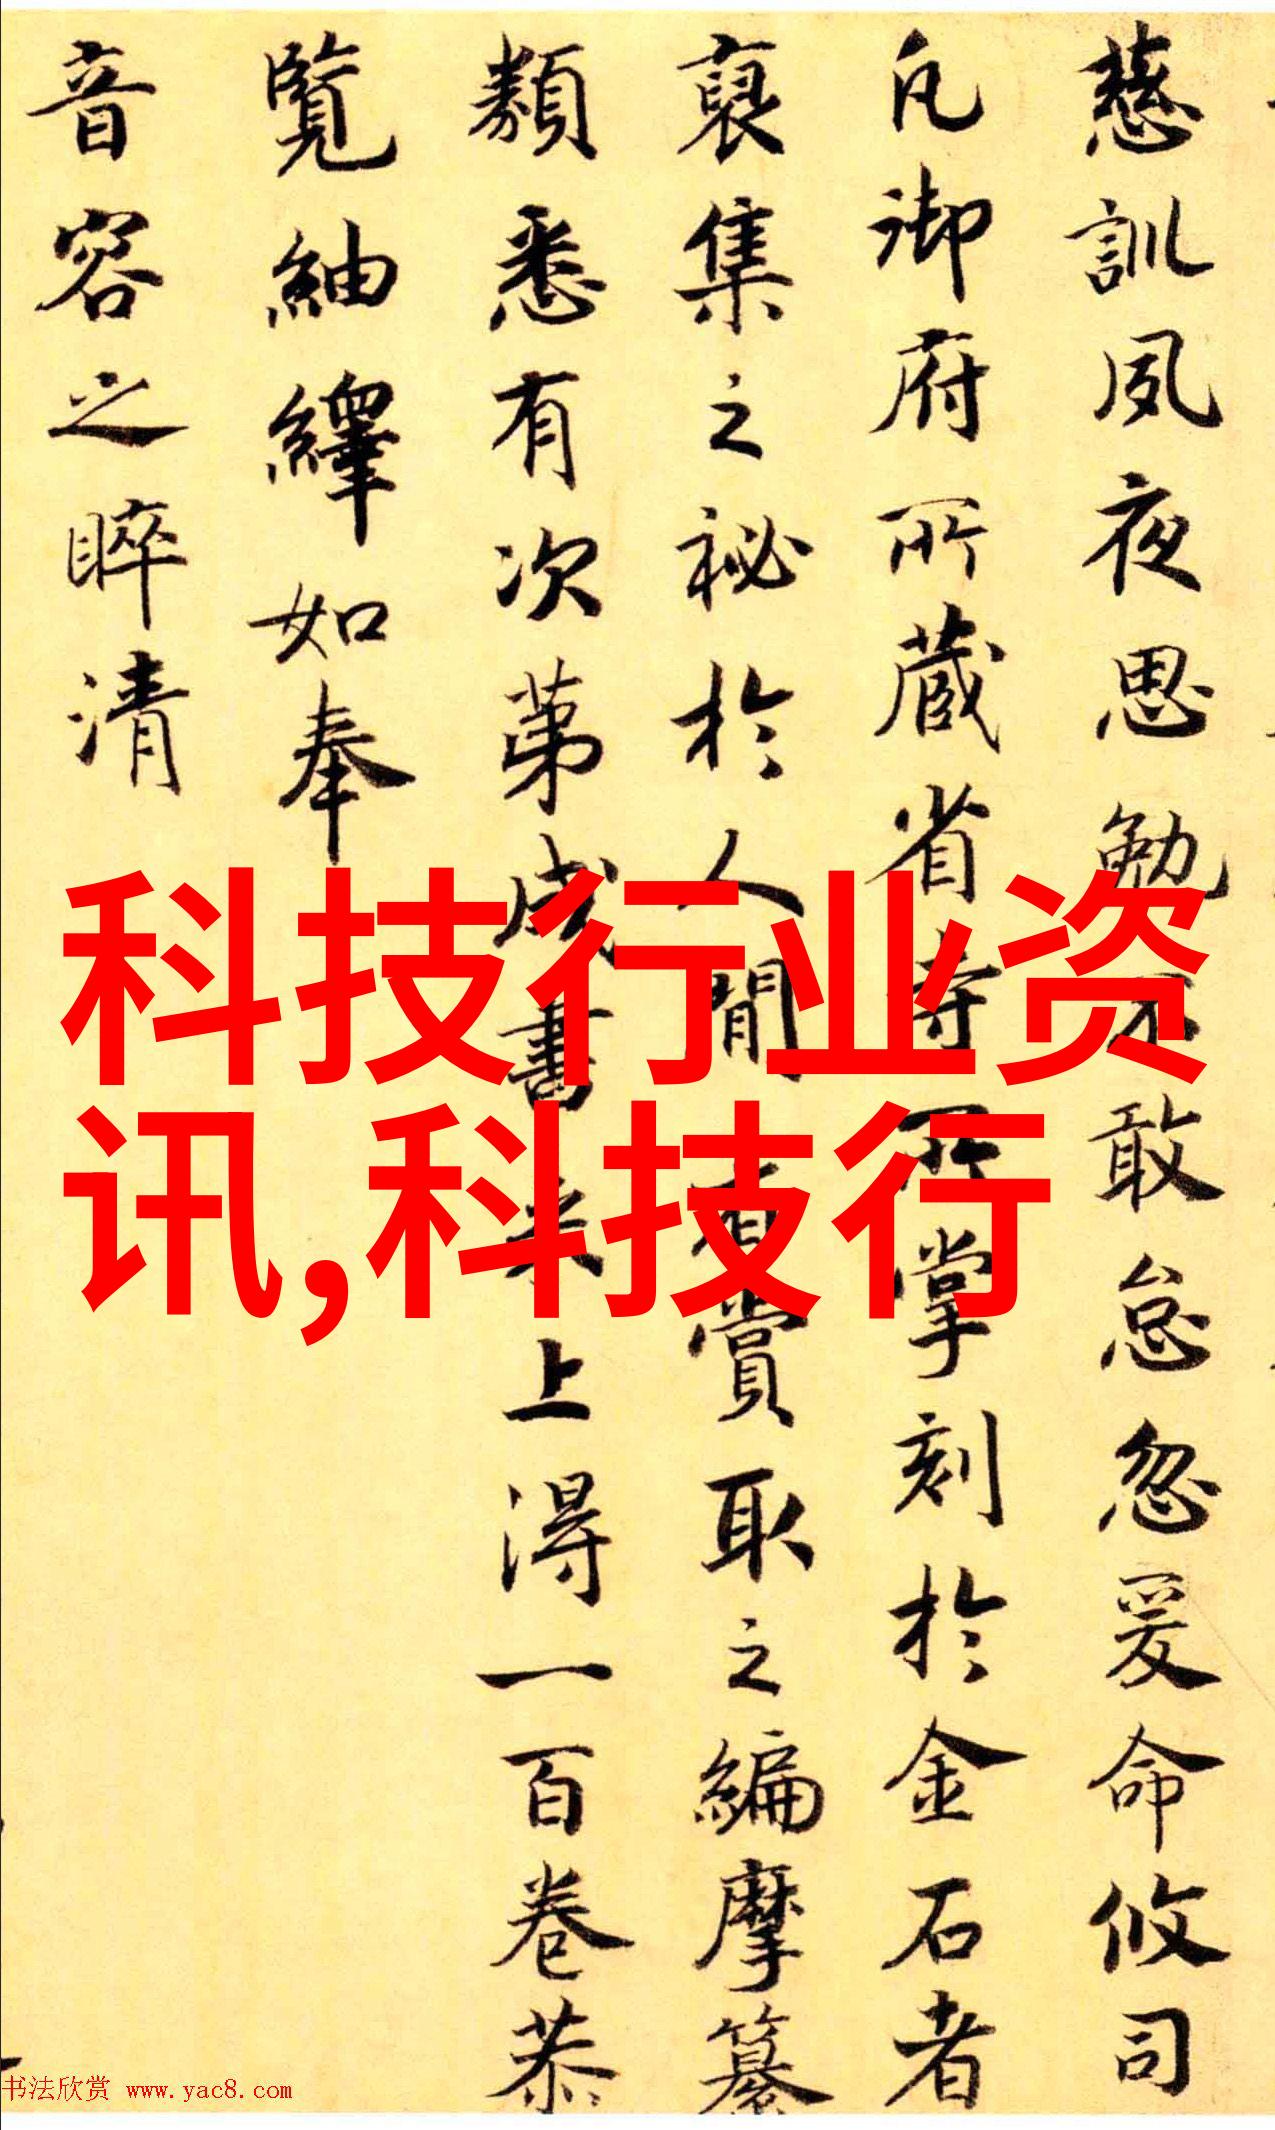 慈訓夙夜思勉不敢怠忽爰命攸司
凡御府所藏省寺所掌刻於金石者
裒集之祕於人間者賞取之編摩纂
類悉有次第成書來上得一百卷恭
覽紬繹如奉
音容之睟清
科技行业资
讯,科技行
书法欣赏 www.yac8.com